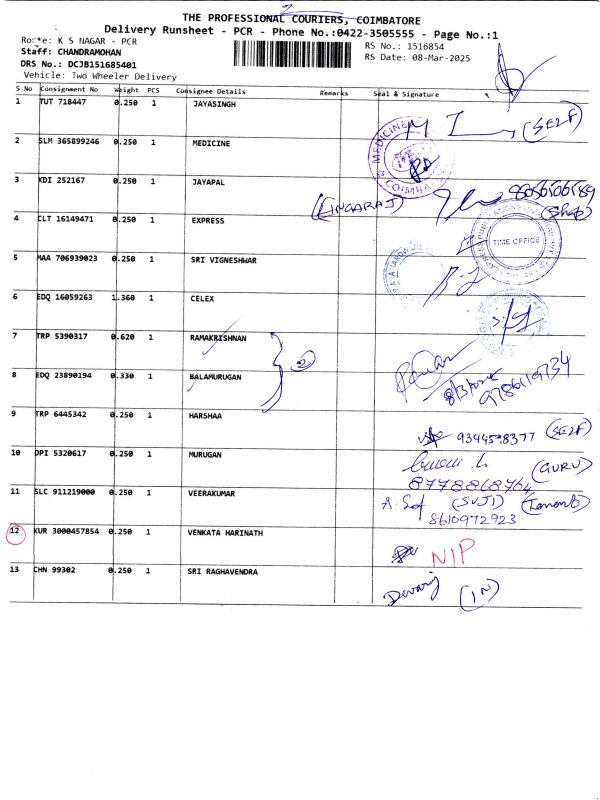 THE PROFESSIONAL COURIERS, COIMBATORE
Delivery Runsheet - PCR - Phone No.:0422-3505555 - Page No.:1
Route: K S NAGAR - PCR
RS No.: 1516854
Staff: CHANDRAMOHAN
RS Date: 08-Mar-2025
DRS No.: DCJB151685401
Vehicle: Two Wheeler Delivery
S No Consignment No Weight PCS Consignee Details Remarks Seal & Signature
1 TUT 718447 0.250 1 JAYASINGH
(SELF)
2 SLM 365899246 0.250 1 MEDICINE
MEDICINE
COIMBA
3 KDI 252167 0.250 1 JAYAPAL
(LINGARAJ)
(Shop)
4 CLT 16149471 0.250 1 EXPRESS
TIME OFFICE
5 MAA 706939023 0.250 1 SRI VIGNESHWAR
6 EDQ 16059263 1.360 1 CELEX
7 TRP 5390317 0.620 1 RAMAKRISHNAN
2
8 EDQ 23890194 0.330 1 BALAMURUGAN
9786119734
9 TRP 6445342 0.250 1 HARSHAA
(SELF)
10 DPI 5320617 0.250 1 MURUGAN
(GURU)
8778868764
11 SLC 911219000 0.250 1 VEERAKUMAR
(SUJI)
8610972923
12 KUR 3000457854 0.250 1 VENKATA HARINATH
NIP
13 CHN 99302 0.250 1 SRI RAGHAVENDRA
Devaraj (IN)